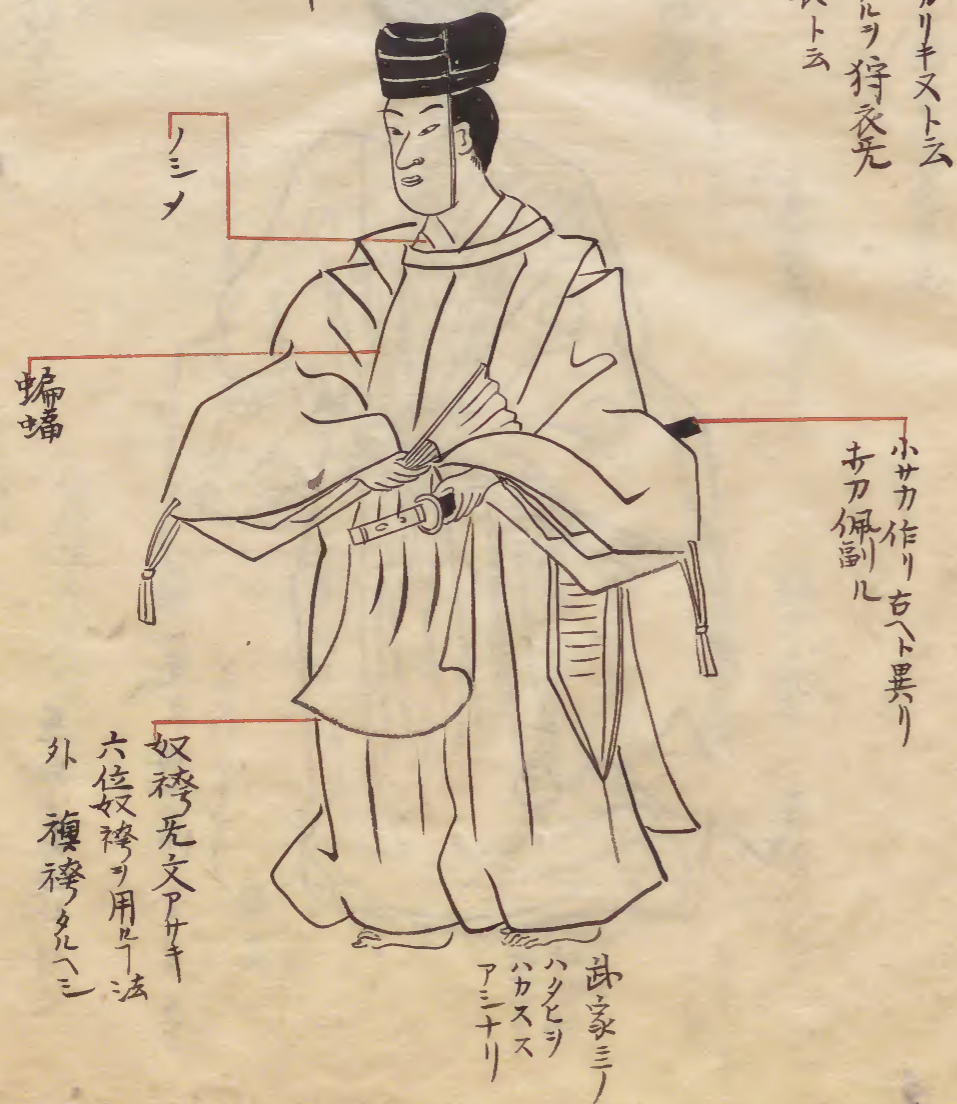 カリキヌト云
ルヲ狩衣无
衣ト云
ノシメ
蝙蝠
小サカ作リ右ヘト異リ
赤刀佩副ル
奴袴无文アサキ
六位奴袴ヲ用ルヿ法
外 襀袴タルヘシ
武家ミノ
ハタヒヲ
ハカスス
アシナリ